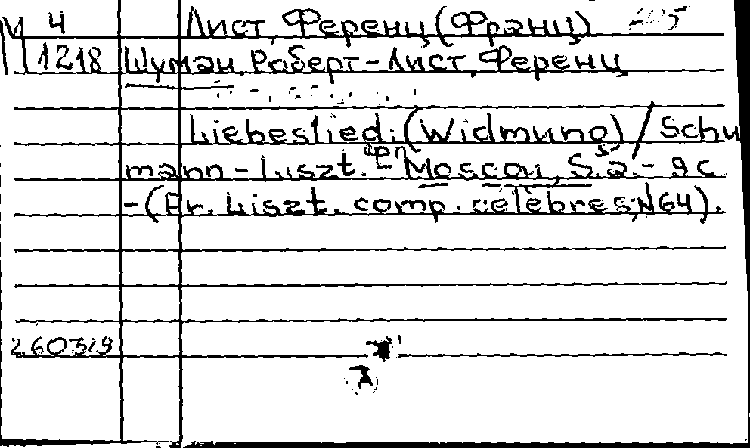 М 4 Лист, Ференц (Франц)
1218 Шуман, Раберт-Лист, Ференц
Liebeslied: (Widmung) / Schu
mann - Liszt. - Moscou, S.a. - 9 c
- (Fr. Liszt. comp. célèbres, N64).
260319